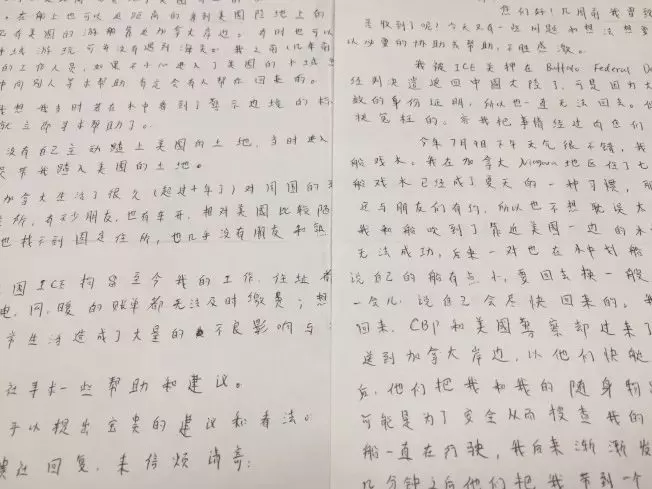 在船上也可以近距离的看到美国陆地上的
有美国的游船靠近加拿大岸边。有时也可以
游玩可并没有遇到海关。我之前几年前
的工作人员,如果不小心进入了美国的水域
向别人寻求帮助肯定会有人帮你回来的。
我想我当时若在水中看到了警示边境的标
就立即寻求帮助了。
没有自己主动踏上美国的土地,当时进入
带我踏入美国的土地。
加拿大生活了很久(超过十年了)对周围的
所,有不少朋友,也有车开,相对美国比较陌
也找不到固定住所,也几乎没有朋友和熟
国ICE拘留至今我的工作、住址都
电、网、暖的账单都无法及时缴费;想
常生活造成了大量的不良影响与
这寻求一些帮助和建议。
予以提出宝贵的建议和看法。
回复,来信烦请寄:
您们好!几周前我曾
收到了呢!今天又有一些问题和想法想要
以必要的协助与帮助,不胜感激。
我被ICE关押在 Buffalo Federal De
经判决遣返回中国大陆了,可是因为
效的身份证明,所以也一直无法回去。
冤枉的。容我把事情经过向您们
今年7月9日下午天气很不错,我
船戏水。我在加拿大 Niagara 地区住了七
船戏水已经成了夏天的一种习惯,
还与朋友们有约,所以也不想耽误太
我和船吹到了靠近美国一边的水
无法成功,后来一对也在水中划船
说自己的船有点小,要回去换一艘
一会儿,说自己会尽快回来的。
回来,CBP和美国警察却过来了
送到加拿大岸边,以他们快艇
后,他们把我和我的随身物
可能是为了安全从而搜查我的
船一直在行驶,我后来渐渐发
几分钟之后他们把我带到一个